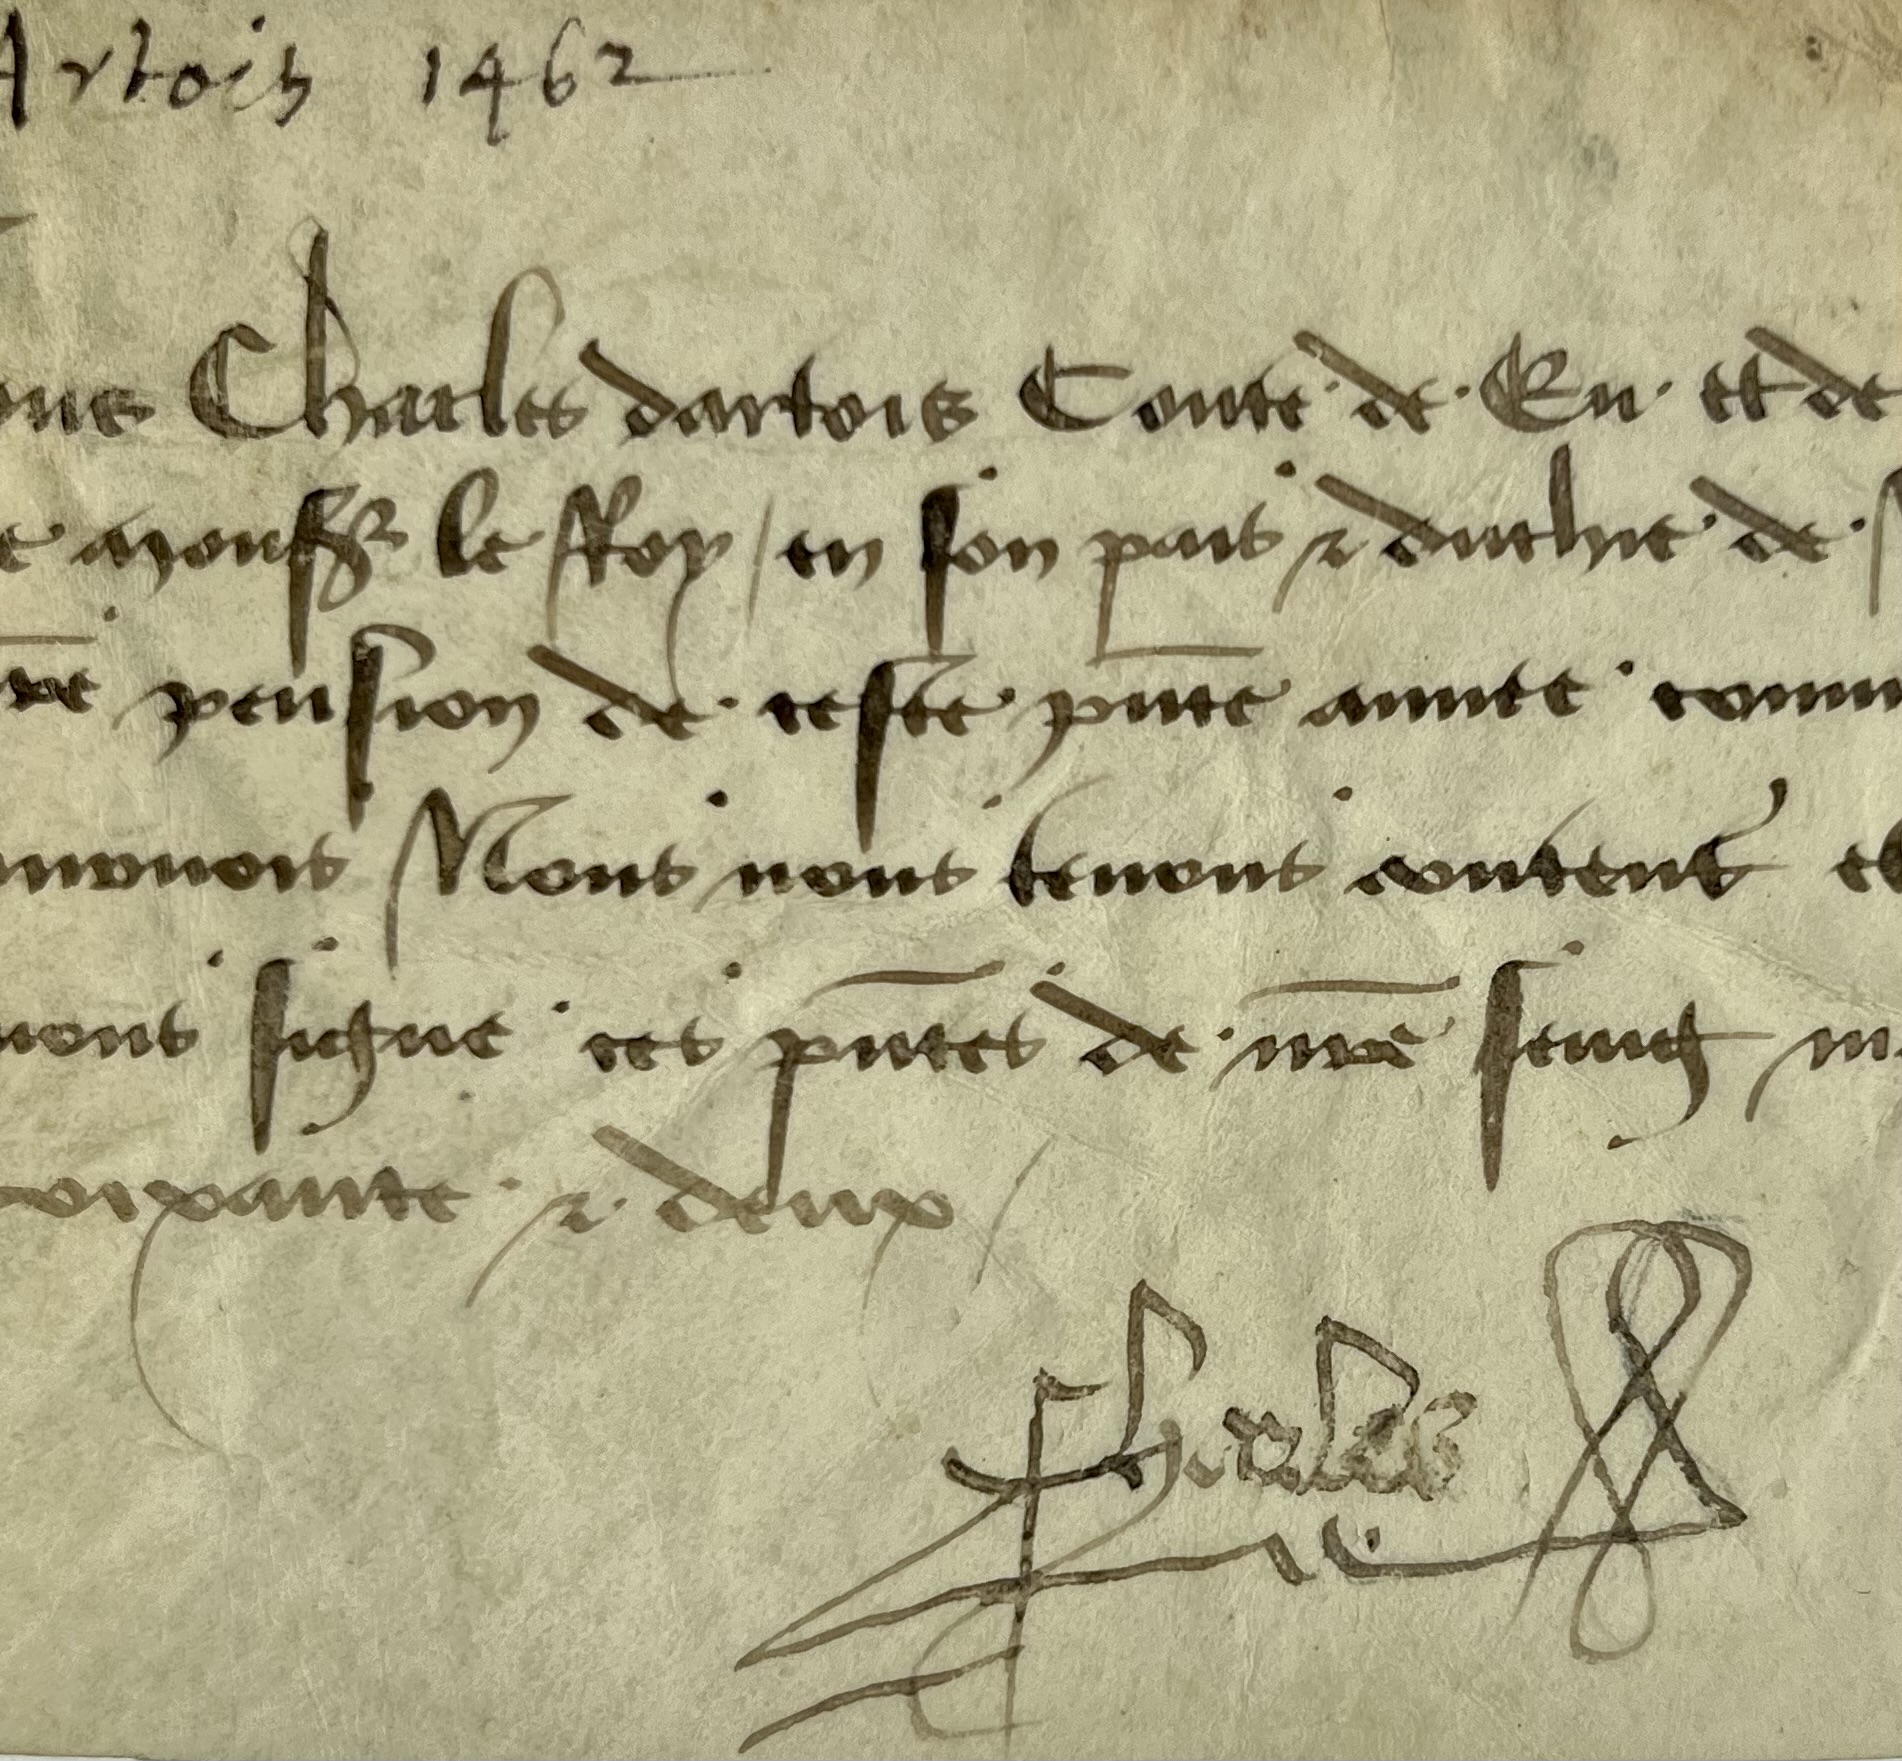 Artois 1462
ous Charles dartois Conte de Eu et de
e monsr le Roy / en son pais & duchie de
nre pension de ceste pnte annee comm
Nous nous tenons contens et
vons signe ces pntes de nre seing m
oixante & deux /
Charles